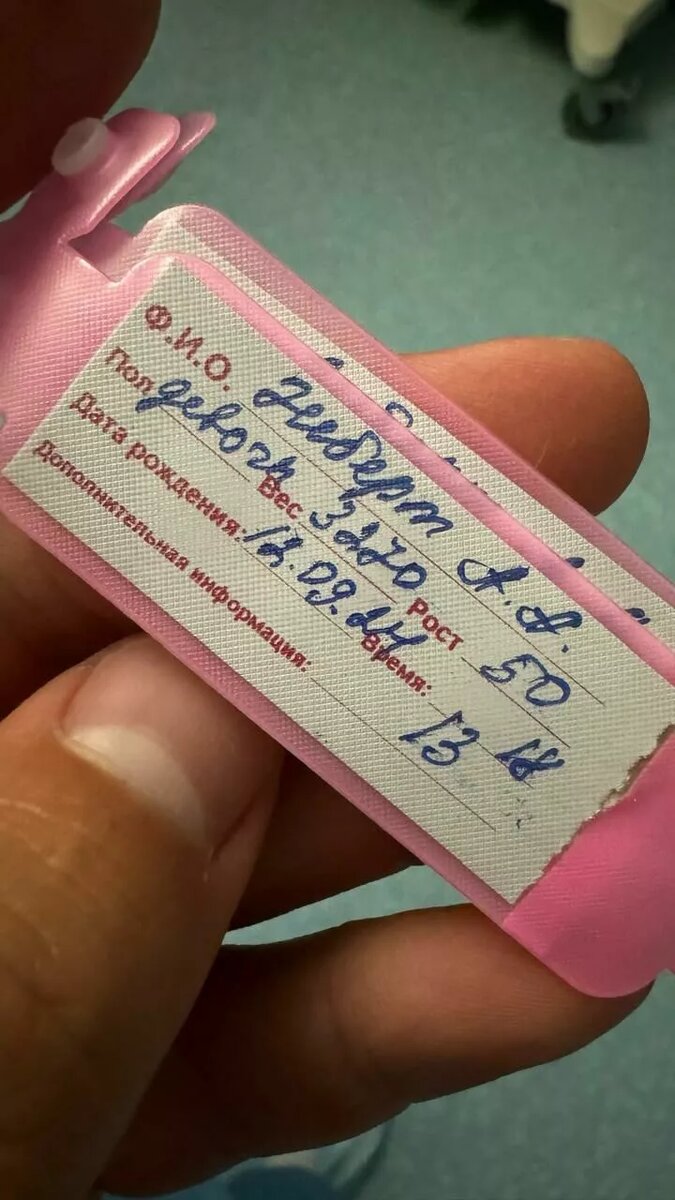 Ф.И.О. Зиберт А.А.
Пол девочк Вес 3270 Рост 50
Дата рождения: 12.09.24 Время: 13 18
Дополнительная информация: